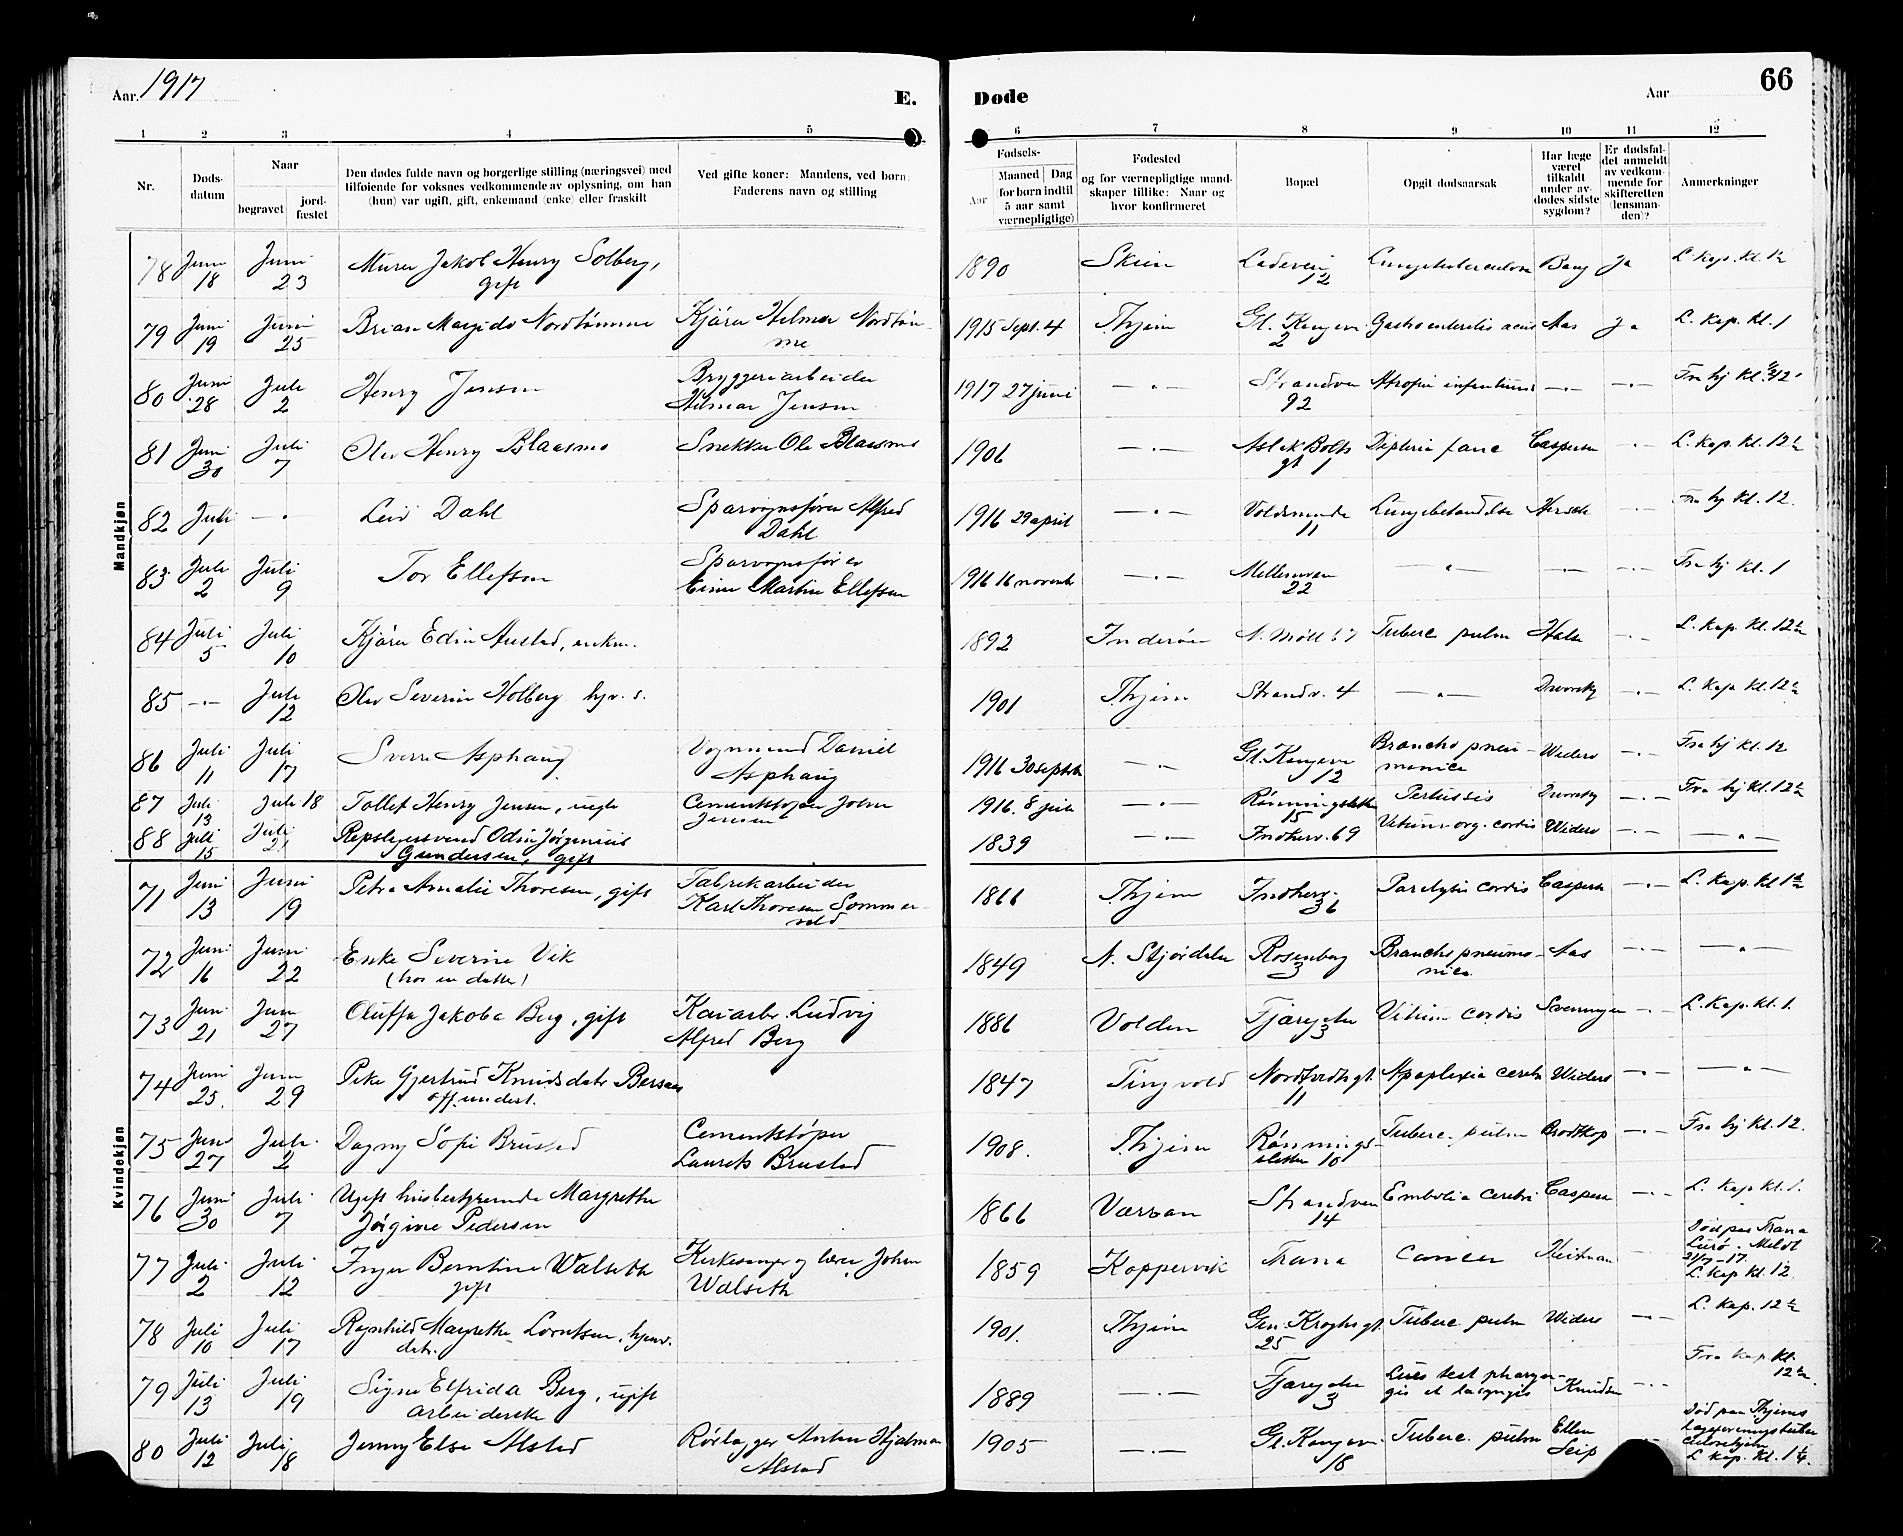 Aar. 1917
E. Døde
Aar
66
1 2 3 4 5 6 7 8 9 10 11 12
Nr.
Døds-
datum
Naar
begravet
jord-
fæstet
Den dødes fulde navn og borgerlige stilling (næringsvei) med
tilføiende for voksnes vedkommende av oplysning, om han
(hun) var ugift, gift, enkemand (enke) eller fraskilt
Ved gifte koner: Mandens, ved børn:
Faderens navn og stilling
Fødsels-
Aar
Maaned Dag
for børn indtil
5 aar samt
værnepligtige)
Fødested
og for værnepligtige mand-
skaper tillike: Naar og
hvor konfirmeret
Bopæl
Opgit dødsaarsak
Har læge
været
tilkaldt
under av-
dødes sidste
sygdom?
Er dødsfal-
det anmeldt
av vedkom-
mende for
skifteretten
(lensman-
den)?
Anmerkninger
Mandkjøn
78 Juni 18 Juni 23 Murer Jakob Henry Solberg, gift 1890 Skien Ladevein 12 Lungetuberculose Bang Ja L. Kap. Kl. 12
79 Juni 19 Juni 25 Nordtømme 1915 Sept. 4 Thjem 2 Gastroenteritis acut Aas Ja L. Kap. Kl. 1
80 Juni 28 Juli 2 Henry Jensen Bryggeriarbeider Hilmar Jensen 1917 27 juni — " — Strandvn 92 Atrofia infantium — " — — " —
81 Juni 30 Juli 7 Olav Henry Blaasmo Snekker Ole Blaasmo 1906 — " — Aslak Bolts gt 1 Casperen — " — L. Kap. Kl. 12½
82 Juli 1 — " — Leiv Dahl Sporvognsfører Alfred Dahl 1916 29 april — " — 11 Lungebetændelse — " — Fra hj Kl. 12.
83 Juli 2 Juli 9 Tor Ellefsen Sporvognsfører Einar Martin Ellefsen 1916 16 novemb — " — 22 — " — — " — — " — Fra hj Kl. 1
84 Juli 5 Juli 10 Edin 1892 Inderøen Tuberc. pulm — " — L. Kap. Kl. 12½
85 — " — Juli 12 Olav Severin Holberg hjv. s. 1901 Thjem Strandv. 4 — " — Dvorsky — " — L. Kap. Kl. 12½
86 Juli 11 Juli 17 Sverre Asphaug Vognmand Daniel Asphaug 1916 30 septbr — " — 12 Broncho pneu- monica Widerø — " — Fra hj Kl. 12
87 Juli 13 Juli 18 Tollef Henry Jensen, Cementstøper Johan Jensen 1916. 8 juli — " — Rønningsletten 15 Pertussis Dvorsky — " — Fra hj Kl. 12½
88 Juli 15 Juli 21 Repslagersvend Odin Jørginius Gundersen, gift 1839 — " — Indherv. 69 Vitium org. cordis Widerø — " — — " —
Kvindekjøn
71 Juni 13 Juni 19 Petra Amalie Thoresen, gift Fabrikarbeider Karl Thoresen Sommer- 1866 Thjem Indherv. 36 Paralysis cordis Caspersen — " — L. Kap. Kl 1½
72 Juni 16 Juni 22 Enke Severine Vik (hos en datter) 1849 N. Stjørdalen Rosenborg 3 Broncho pneumo- nica Aas — " — — " —
73 Juni 21 Juni 27 Oluffa Jakoba Berg, gift Kaiarbr. Ludvig Alfred Berg 1886 Volden Fjæregt 3 Vitium cordis — " — L. Kap. Kl. 1.
74 Juni 25. Juni 29 Gjertrud Knudsdatr off. underst. 1847 Tingvold 11 Apoplexia cerebri Widerø — " — — " —
75 Juni 27 Juli 2 Dagny Sofie Brustad Cementstøper Laurits Brustad 1908. Thjem Rønnings- sletten 10 Tuberc. pulm Brodtkop — " — Fra hj Kl. 12.
76 Juni 30 Juli 7 Ugift husbestyrerinde Margrethe Jørgine Pedersen 1866 Værran Strandven 14 Embolia cerebri Caspersen — " — L. Kap Kl. 1.
77 Juli 2 Juli 12 Inger Berntine Walseth gift Kirkesanger og lærer Johan Walseth 1859 Koppervik Træna Cancer Død paa Træna Lurø. Meldt L. Kap Kl. 12.
78 Juli 10 Juli 17 Ragnhild Margrethe Lorntsen, hjemv. datr. 1901. Thjem Gen. Kroghsgt 25 Tuberc pulm Widerø — " — L. Kap. 12½
79 Juli 13 Juli 19 Signe Elfrida Berg, ugift arbeiderske 1889 — " — Fjæregt 3 Lues tert pharyn- gis et laryngis Knudsen — " — Fra Kap Kl. 12½
80 Juli 12 Juli 18 Jenny Else Alstad Rørlægger Anton Hjalmar Alstad 1905 — " — 18 Tuberc. pulm Død paa Thjems L. Kap. Kl. 1¼.